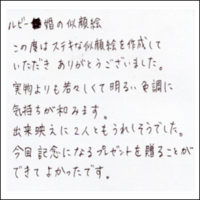 ルビー婚の似顔絵
この度はステキな似顔絵を作成して
いただき ありがとうございました。
実物よりも若々しくて明るい色調に
気持ちが和みます。
出来映えに2人ともうれしそうでした。
今回記念になるプレゼントを贈ることが
できてよかったです。